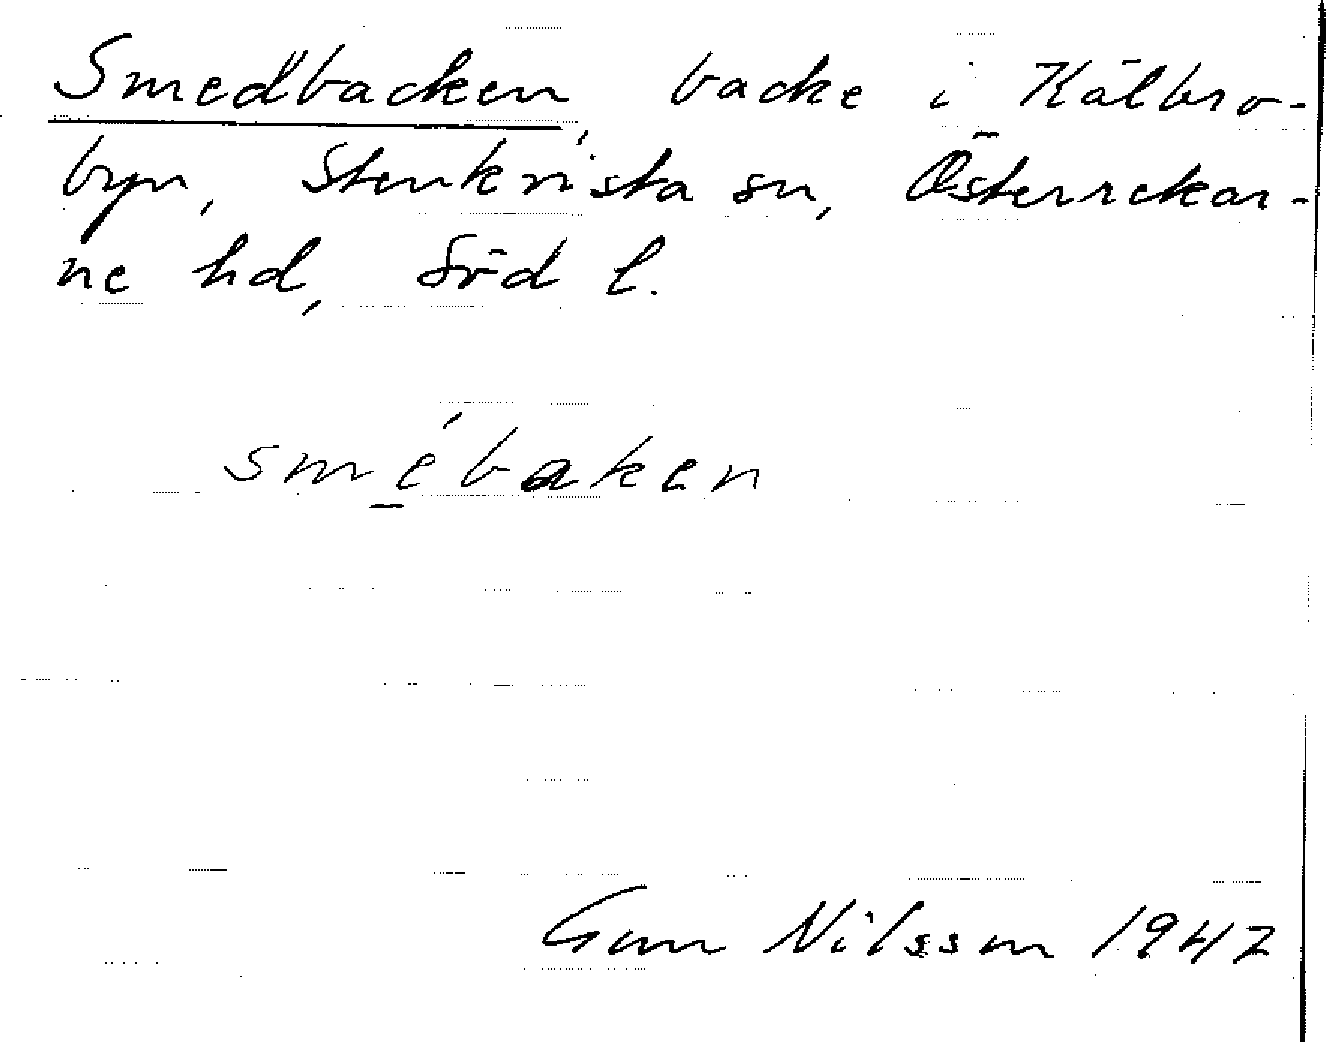 Smedbacken, backe i Kälbro-
byn, Stenkvista sn, Österrekar-
ne hd, Söd l.
smébaken
Gun Nilsson 1947